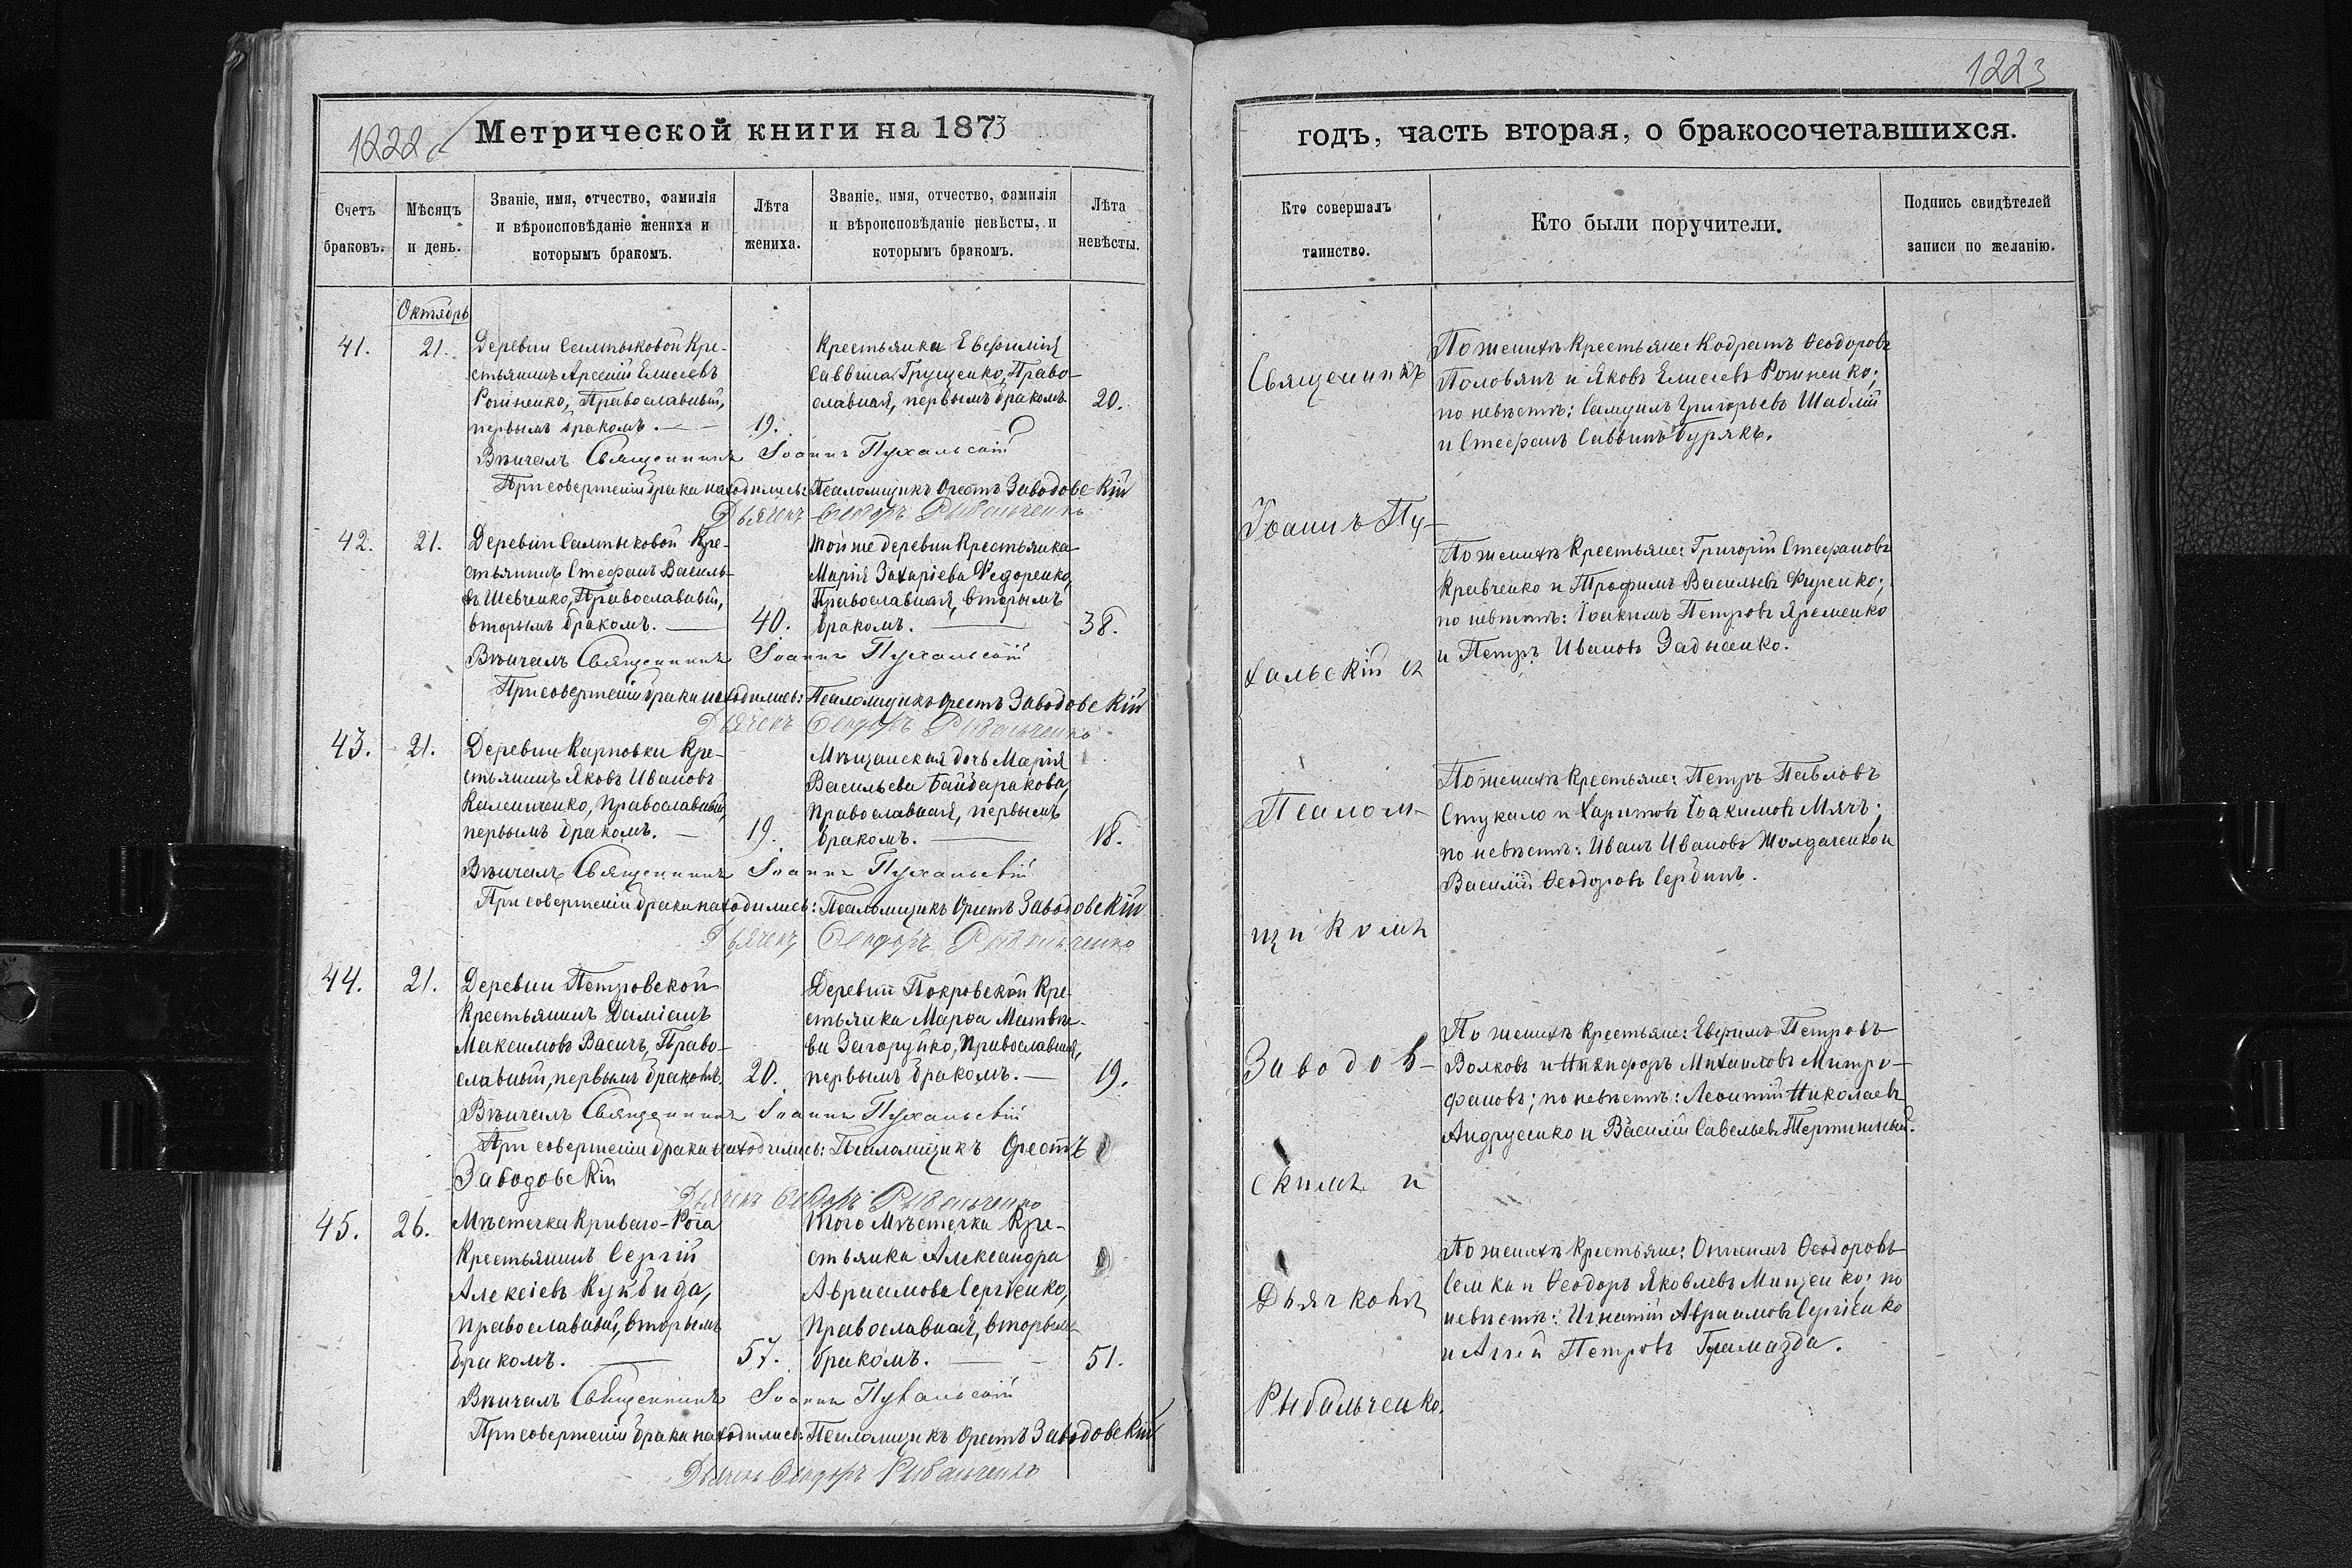 1222
Метрической книги на 1873
Счетъ браковъ.
Мѣсяцъ и день.
Званіе, имя, отчество, фамилія
и вѣроисповѣданіе жениха и
которымъ бракомъ.
Лѣта жениха.
Званіе, имя, отчество, фамилія
и вѣроисповѣданіе невѣсты, и
которымъ бракомъ.
Лѣта невѣсты.
Октябрь
41.
21.
Деревни Салтыковой Кре-
стьянинъ Арсеній Елисеевъ
Рожненко, Православный,
первымъ бракомъ.
19.
Крестьянка Евфимія
Саввина Грущенко, Право-
славная, первымъ бракомъ
20.
Вѣнчалъ Священникъ Іоаннъ Пухальскій
При совершеніи брака находились: Псаломщикъ Орестъ Заводовскій
Дьячекъ Ѳеодоръ Рыбальченко
42.
21.
Деревни Салтыковой Кре-
стьянинъ Стефанъ Василь-
въ Шевченко, Православный,
вторымъ бракомъ.
40.
той же деревни Крестьянка
Марія Захаріева Федоренко,
Православная, вторымъ
бракомъ.
38.
Вѣнчалъ Священникъ Іоаннъ Пухальскій
При совершеніи брака находились: Псаломщикъ Орестъ Заводовскій
Дьячекъ Ѳеодоръ Рыбальченко
43.
21.
Деревни Карповки Кре-
стьянинъ Яковъ Ивановъ
Калениченко, Православный,
первымъ бракомъ.
19.
Мѣщанская дочь Марія
Васильева Байдаракова,
Православная, первымъ
бракомъ.
18.
Вѣнчалъ Священникъ Іоаннъ Пухальскій
При совершеніи брака находились: Псаломщикъ Орестъ Заводовскій
Дьячекъ Ѳеодоръ Рыбальченко
44.
21.
Деревни Петровской
Крестьянинъ Даміанъ
Максимовъ Васичъ, Право-
славный, первымъ бракомъ.
20.
Деревни Покровской Кре-
стьянка Марѳа Матвѣе-
ва Загоруйко, Православная,
первымъ бракомъ.
19.
Вѣнчалъ Священникъ Іоаннъ Пухальскій
При совершеніи брака находились: Псаломщикъ Орестъ
Заводовскій
Дьячекъ Ѳеодоръ Рыбальченко
45.
26.
Мѣстечка Криваго-Рога
Крестьянинъ Сергій
Алексіевъ Кукбида,
Православный, вторымъ
бракомъ.
57.
того Мѣстечка Кре-
стьянка Александра
Авраамова Сергіенко,
Православная, вторымъ
бракомъ.
51.
Вѣнчалъ Священникъ Іоаннъ Пухальскій
При совершеніи брака находились: Псаломщикъ Орестъ Заводовскій
Дьячекъ Ѳеодоръ Рыбальченко
1223
годъ, часть вторая, о бракосочетавшихся.
Кто совершалъ таинство.
Кто были поручители.
Подпись свидѣтелей
записи по желанію.
Священникъ
Іоаннъ Пу-
хальскій съ
Псалом-
щикомъ
Заводов-
скимъ и
Дьячкомъ
Рыбальченко.
По женихѣ Крестьяне: Кодратъ Ѳеодоровъ
Половянъ и Яковъ Елисеевъ Рожненко;
по невѣстѣ: Самуилъ Григорьевъ Шаблій
и Стефанъ Саввинъ Бурякъ.
По женихѣ Крестьяне: Григорій Стефановъ
Кравченко и Трофимъ Васильевъ Фиренко;
по невѣстѣ: Іоакимъ Петровъ Яременко
и Петръ Ивановъ Задысенко.
По женихѣ Крестьяне: Петръ Павловъ
Стукало и Харитонъ Іоакимовъ Мячъ;
по невѣстѣ: Иванъ Ивановъ Толдаченко и
Василій Ѳеодоровъ Сердинъ.
По женихѣ Крестьяне: Евфимъ Петровъ
Волковъ и Никифоръ Михаиловъ Митро-
фановъ; по невѣстѣ: Леонтій Николаевъ
Андрусенко и Василій Савельевъ Тертишный.
По женихѣ Крестьяне: Онисимъ Ѳеодоровъ
Семка и Ѳеодоръ Яковлевъ Мищенко; по
невѣстѣ: Игнатій Авраамовъ Сергіенко
и Аггей Петровъ Грамазда.